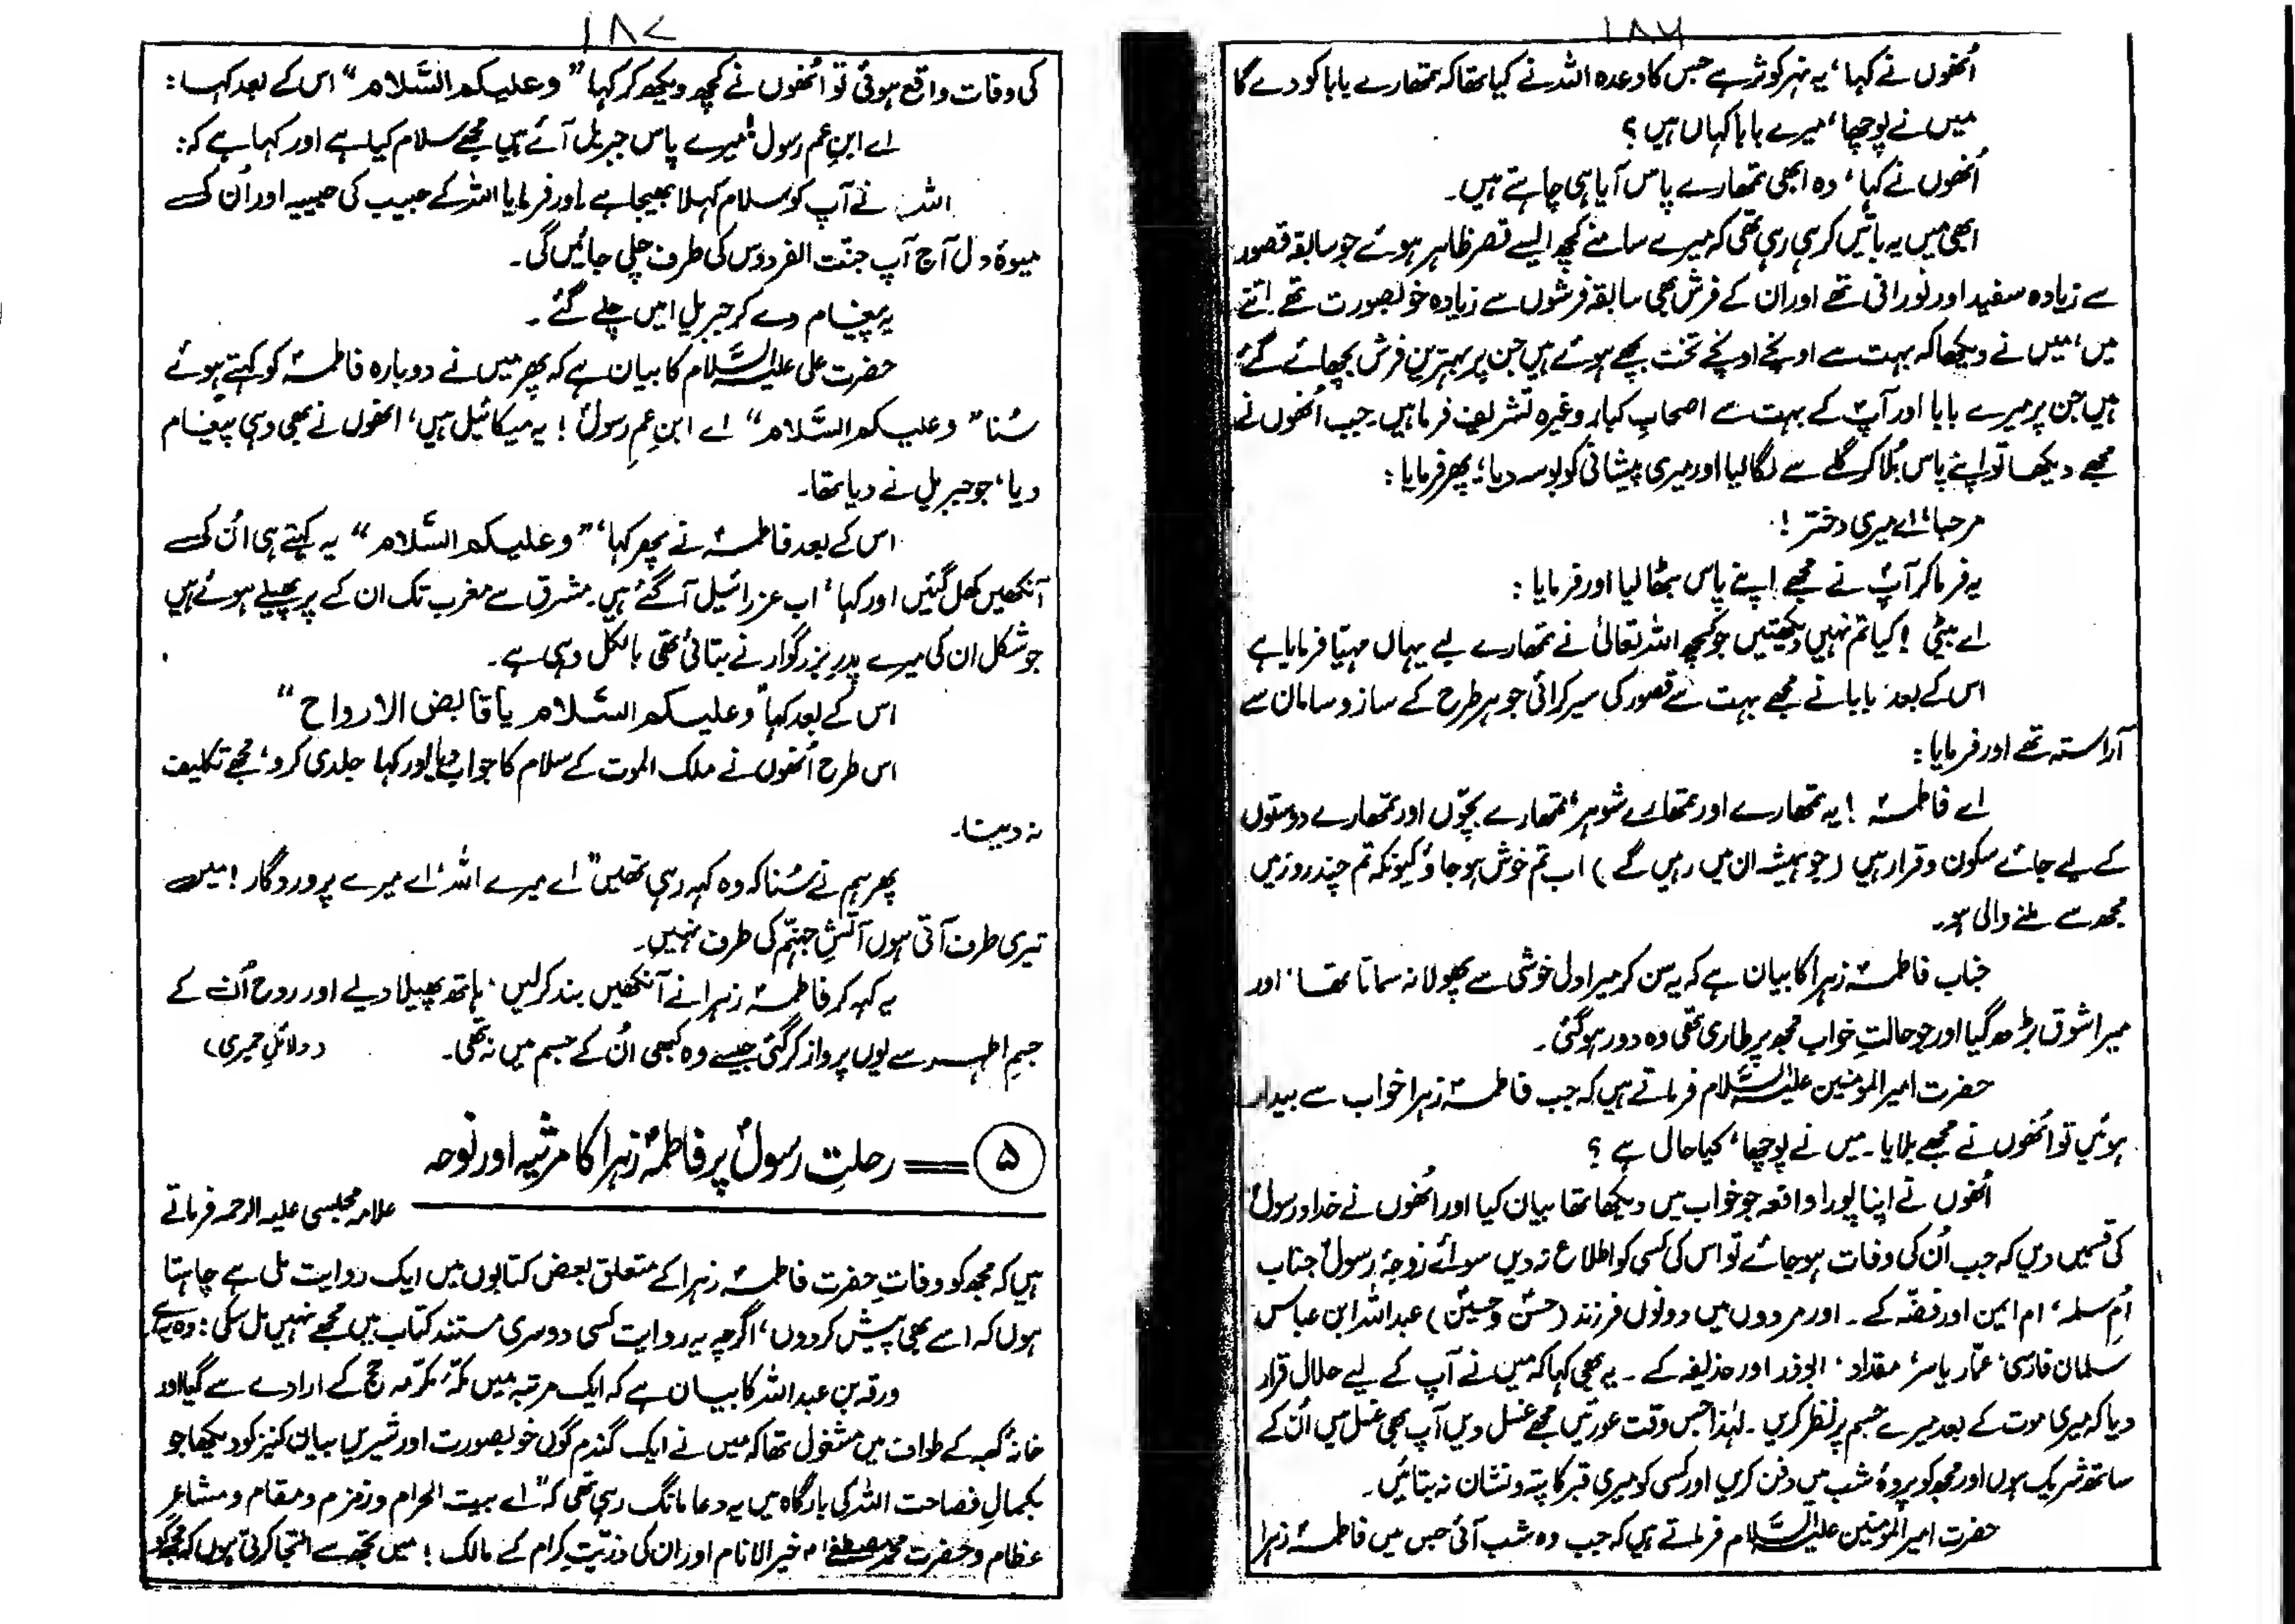 ۱۸۶
اُنھوں نے کہا، یہ نہر کوثر ہے جس کا وعدہ اللہ نے کیا تھا کہ تمھارے بابا کو دے گا
میں نے پوچھا، میرے بابا کہاں ہیں؟
اُنھوں نے کہا، وہ ابھی تمھارے پاس آیا ہی چاہتے ہیں۔
ابھی میں یہ باتیں کر ہی رہی تھی کہ میرے سامنے کچھ ایسے قصر ظاہر ہوئے جو سابقہ قصور
سے زیادہ سفید اور نورانی تھے اور ان کے فرش بھی سابقہ فرشوں سے زیادہ خوبصورت تھے۔ اتنے
میں، میں نے دیکھا کہ بہت سے اونچے اونچے تخت بچھے ہوئے ہیں جن پر بہترین فرش بچھائے گئے
ہیں جن پر میرے بابا اور آپؐ کے بہت سے اصحابِ کبار وغیرہ تشریف فرما ہیں۔ جب اُنھوں نے
مجھے دیکھا تو اپنے پاس بُلا کر گلے سے لگا لیا اور میری پیشانی کو بوسہ دیا؛ پھر فرمایا:
مرحبا، اے میری دختر!
یہ فرما کر آپؐ نے مجھے اپنے پاس بٹھا لیا اور فرمایا:
اے بیٹی! کیا تم نہیں دیکھتیں جو کچھ اللہ تعالیٰ نے تمھارے لیے یہاں مہیّا فرمایا ہے
اس کے بعد بابا نے مجھے بہت سے قصور کی سیر کرائی جو ہر طرح کے ساز و سامان سے
آراستہ تھے اور فرمایا:
اے فاطمہؑ! یہ تمھارے اور تمھارے شوہر، تمھارے بچّوں اور تمھارے دوستوں
کے لیے جائے سکون و قرار ہیں (جو ہمیشہ ان میں رہیں گے) اب تم خوش ہو جاؤ کیونکہ تم چند روز میں
مجھ سے ملنے والی ہو۔
جناب فاطمہؑ زہرا کا بیان ہے کہ یہ سن کر میرا دل خوشی سے پھولا نہ سماتا تھا، اور
میرا شوق بڑھ گیا اور جو حالتِ خواب مجھ پر طاری تھی وہ دور ہو گئی۔
حضرت امیر المومنین علیہ السَّلام فرماتے ہیں کہ جب فاطمہؑ زہرا خواب سے بیدار
ہوئیں تو اُنھوں نے مجھے بلایا۔ میں نے پوچھا، کیا حال ہے؟
اُنھوں نے اپنا پورا واقعہ جو خواب میں دیکھا تھا بیان کیا اور اُنھوں نے خدا و رسولؐ
کی قسمیں دیں کہ جب اُن کی وفات ہو جائے تو اس کی کسی کو اطلاع نہ دیں سوائے زوجۂ رسولؐ جناب
اُم سلمہ، ام ایمن اور فضّہ کے۔ اور مردوں میں دونوں فرزند (حسنؑ و حسینؑ) عبداللہ ابن عباس
سلمان فارسی، عمّار یاسر، مقداد، ابوذر اور حذیفہ کے۔ یہ بھی کہا کہ میں نے آپ کے لیے حلال قرار
دیا کہ میری موت کے بعد میرے جسم پر نظر کریں۔ لہٰذا جس وقت عورتیں مجھے غسل دیں آپ بھی غسل میں اُن کے
ساتھ شریک ہوں اور مجھ کو پردۂ شب میں دفن کریں اور کسی کو میری قبر کا پتہ و نشان نہ بتائیں۔
حضرت امیر المومنین علیہ السَّلام فرماتے ہیں کہ جب وہ شب آئی جس میں فاطمہؑ زہرا
۱۸۷
کی وفات واقع ہوئی تو اُنھوں نے کچھ دیکھ کر کہا ”وعلیکم السَّلام“ اس کے بعد کہا:
اے ابنِ عم رسولؐ! میرے پاس جبریل آئے ہیں مجھے سلام کیا ہے اور کہا ہے کہ:
اللہ نے آپ کو سلام کہلا بھیجا ہے اور فرمایا اللہ کے حبیب کی حبیبہ اور اُن کے
میوۂ دل آج آپ جنّت الفردوس کی طرف چلی جائیں گی۔
یہ پیغام دے کر جبریل امیں چلے گئے۔
حضرت علی علیہ السَّلام کا بیان ہے کہ پھر میں نے دوبارہ فاطمہؑ کو کہتے ہوئے
سُنا ”وعلیکم السَّلام“ اے ابنِ عمِ رسولؐ! یہ میکائیل ہیں، انھوں نے بھی وہی پیغام
دیا، جو جبریل نے دیا تھا۔
اس کے بعد فاطمہؑ نے پھر کہا، ”وعلیکم السَّلام“ یہ کہتے ہی اُن کی
آنکھیں کھل گئیں اور کہا، اب عزرائیل آگئے ہیں۔ مشرق سے مغرب تک ان کے پر پھیلے ہوئے ہیں
جو شکل ان کی میرے پدرِ بزرگوار نے بتائی تھی بالکل وہی ہے۔
اس کے بعد کہا ”وعلیکم السَّلام یا قابض الارواح“
اس طرح اُنھوں نے ملک الموت کے سلام کا جواب دیا اور کہا جلدی کرو، مجھے تکلیف
نہ دینا۔
پھر ہم نے سُنا کہ وہ کہہ رہی تھیں ”اے میرے اللہ، اے میرے پروردگار! میں
تیری طرف آتی ہوں آتشِ جہنّم کی طرف نہیں۔
یہ کہہ کر فاطمہؑ زہرا نے آنکھیں بند کرلیں، ہاتھ پھیلا دیے اور روح اُن کے
جسمِ اطہر سے یوں پرواز کر گئی جیسے وہ کبھی اُن کے جسم میں نہ تھی۔ (دلائلِ حمیری)
۵ = رحلتِ رسولؐ پر فاطمہؑ زہرا کا مرثیہ اور نوحہ
علامہ مجلسی علیہ الرحمہ فرماتے
ہیں کہ مجھ کو وفاتِ حضرت فاطمہؑ زہرا کے متعلق بعض کتابوں میں ایک روایت ملی ہے چاہتا
ہوں کہ اسے بھی پیش کردوں، اگرچہ یہ روایت کسی دوسری مستند کتاب میں مجھے نہیں مل سکی: وہ یہ ہے
ورقہ بن عبداللہ کا بیان ہے کہ ایک مرتبہ میں مکّہ مکرّمہ حج کے ارادے سے گیا اور
خانۂ کعبہ کے طواف میں مشغول تھا کہ میں نے ایک گندم گوں خوبصورت اور شیریں بیان کنیز کو دیکھا جو
بکمالِ فصاحت اللہ کی بارگاہ میں یہ دعا مانگ رہی تھی کہ ”اے بیت الحرام و زمزم و مقام و مشاعرِ
عظام و حضرت محمد مصطفےٰ ؐ خیر الانام اور ان کی ذرّیتِ کرام کے مالک! میں تجھ سے التجا کرتی ہوں کہ مجھ کو